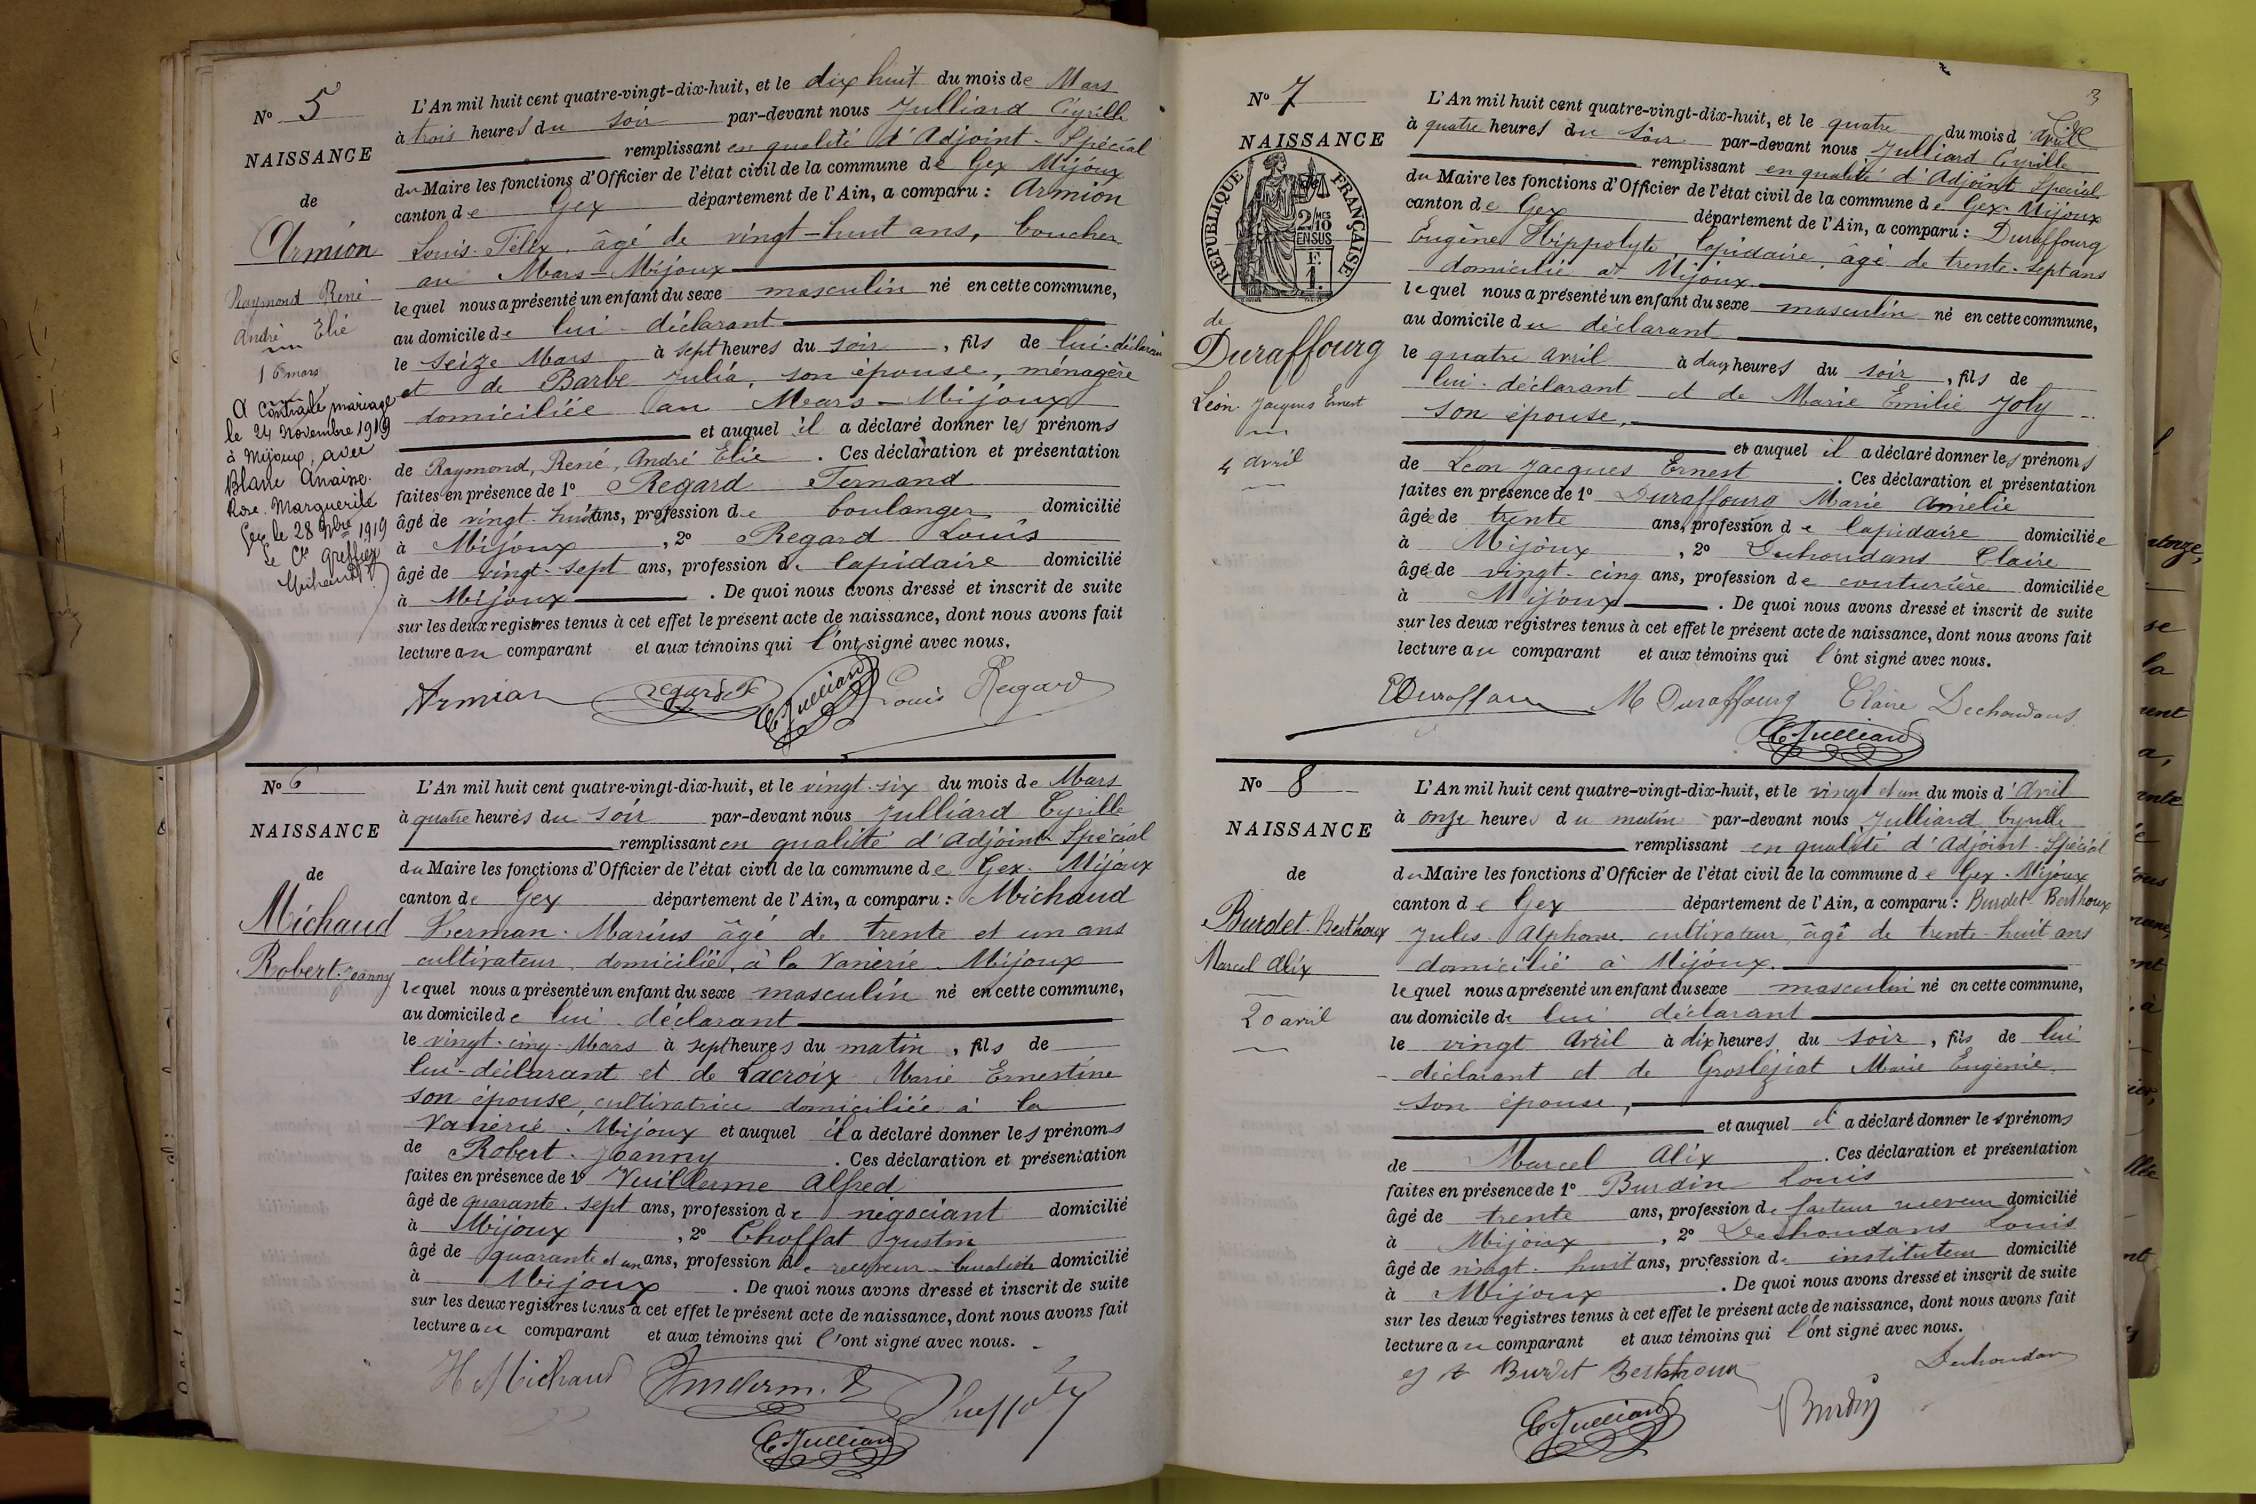 No 5
NAISSANCE
de
Armion
Raymond René
André Elié
16 mars
A contracté mariage
le 24 Novembre 1919
à Mijoux, avec
Blanc Anaïse
Rose Marguerite
Gex le 28 9bre 1919
Le Cs Greffier
L'An mil huit cent quatre-vingt-dix-huit, et le dix huit du mois de Mars
à trois heures du soir par-devant nous Julliard Cyrille
remplissant en qualité d'Adjoint-Spécial
du Maire les fonctions d'Officier de l'état civil de la commune de Gex Mijoux
canton de Gex département de l'Ain, a comparu : Armion
Louis-Félix, âgé de vingt-huit ans, boucher
au Mars-Mijoux
lequel nous a présenté un enfant du sexe masculin né en cette commune,
au domicile de lui-déclarant
le seize Mars à sept heures du soir, fils de lui-déclarant
et de Barbe Julia, son épouse, ménagère
domiciliée au Mars-Mijoux
et auquel il a déclaré donner les prénoms
de Raymond, René, André Elie. Ces déclaration et présentation
faites en présence de 1° Regard Fernand
âgé de vingt-huit ans, profession de boulanger domicilié
à Mijoux, 2° Regard Louis
âgé de vingt-sept ans, profession de lapidaire domicilié
à Mijoux. De quoi nous avons dressé et inscrit de suite
sur les deux registres tenus à cet effet le présent acte de naissance, dont nous avons fait
lecture au comparant et aux témoins qui l'ont signé avec nous.
Armion Regard F C. Julliard Louis Regard
No 6
NAISSANCE
de
Michaud
Robert-Jeanny
L'An mil huit cent quatre-vingt-dix-huit, et le vingt-six du mois de Mars
à quatre heures du soir par-devant nous Julliard Cyrille
remplissant en qualité d'Adjoint Spécial
du Maire les fonctions d'Officier de l'état civil de la commune de Gex-Mijoux
canton de Gex département de l'Ain, a comparu : Michaud
Herman-Marius âgé de trente et un ans
cultivateur, domicilié, à la Vanerie-Mijoux
lequel nous a présenté un enfant du sexe masculin né en cette commune,
au domicile de lui-déclarant
le vingt-cinq-Mars à sept heures du matin, fils de
lui-déclarant et de Lacroix Marie Ernestine
son épouse, cultivatrice domiciliée à la
Vanerie-Mijoux et auquel il a déclaré donner les prénoms
de Robert-Jeanny. Ces déclaration et présentation
faites en présence de 1° Vuillerme Alfred
âgé de quarante-sept ans, profession de négociant domicilié
à Mijoux, 2° Choffat Justin
âgé de quarante et un ans, profession de receveur-buraliste domicilié
à Mijoux. De quoi nous avons dressé et inscrit de suite
sur les deux registres tenus à cet effet le présent acte de naissance, dont nous avons fait
lecture au comparant et aux témoins qui l'ont signé avec nous.
H Michaud
C. Julliard
3
No 7
NAISSANCE
RÉPUBLIQUE FRANÇAISE
2/10
MES
EN SUS
F.
1.
de
Duraffourg
Léon-Jacques Ernest
4 avril
L'An mil huit cent quatre-vingt-dix-huit, et le quatre du mois d'avril
à quatre heures du soir par-devant nous Julliard Cyrille
remplissant en qualité d'Adjoint Spécial
du Maire les fonctions d'Officier de l'état civil de la commune de Gex-Mijoux
canton de Gex département de l'Ain, a comparu : Duraffourg
Eugène Hippolyte, lapidaire, âgé de trente-sept ans
domicilié à Mijoux
lequel nous a présenté un enfant du sexe masculin né en cette commune,
au domicile du déclarant
le quatre avril à deux heures du soir, fils de
lui-déclarant et de Marie Emilie Joly
son épouse,
et auquel il a déclaré donner les prénoms
de Léon Jacques Ernest. Ces déclaration et présentation
faites en présence de 1° Duraffourg Marie Amélie
âgée de trente ans, profession de lapidaire domiciliée
à Mijoux, 2° Dechoudans Claire
âgée de vingt-cinq ans, profession de couturière domiciliée
à Mijoux. De quoi nous avons dressé et inscrit de suite
sur les deux registres tenus à cet effet le présent acte de naissance, dont nous avons fait
lecture au comparant et aux témoins qui l'ont signé avec nous.
M Duraffourg Claire Dechoudans
C. Julliard
No 8
NAISSANCE
de
Burdet-Berthoux
Marcel Alix
20 avril
L'An mil huit cent quatre-vingt-dix-huit, et le vingt et un du mois d'Avril
à onze heures du matin par-devant nous Julliard Cyrille
remplissant en qualité d'Adjoint-Spécial
du Maire les fonctions d'Officier de l'état civil de la commune de Gex-Mijoux
canton de Gex département de l'Ain, a comparu : Burdet-Berthoux
Jules-Alphonse, cultivateur, âgé de trente-huit ans
domicilié à Mijoux.
lequel nous a présenté un enfant du sexe masculin né en cette commune,
au domicile de lui déclarant
le vingt Avril à dix heures du soir, fils de lui
déclarant et de Grosléziat Marie Eugénie
son épouse,
et auquel il a déclaré donner les prénoms
de Marcel Alix. Ces déclaration et présentation
faites en présence de 1° Burdin Louis
âgé de trente ans, profession de facteur receveur domicilié
à Mijoux, 2° Dechoudans Louis
âgé de vingt-huit ans, profession de instituteur domicilié
à Mijoux. De quoi nous avons dressé et inscrit de suite
sur les deux registres tenus à cet effet le présent acte de naissance, dont nous avons fait
lecture au comparant et aux témoins qui l'ont signé avec nous.
Burdet Berthoux
C. Julliard Burdin